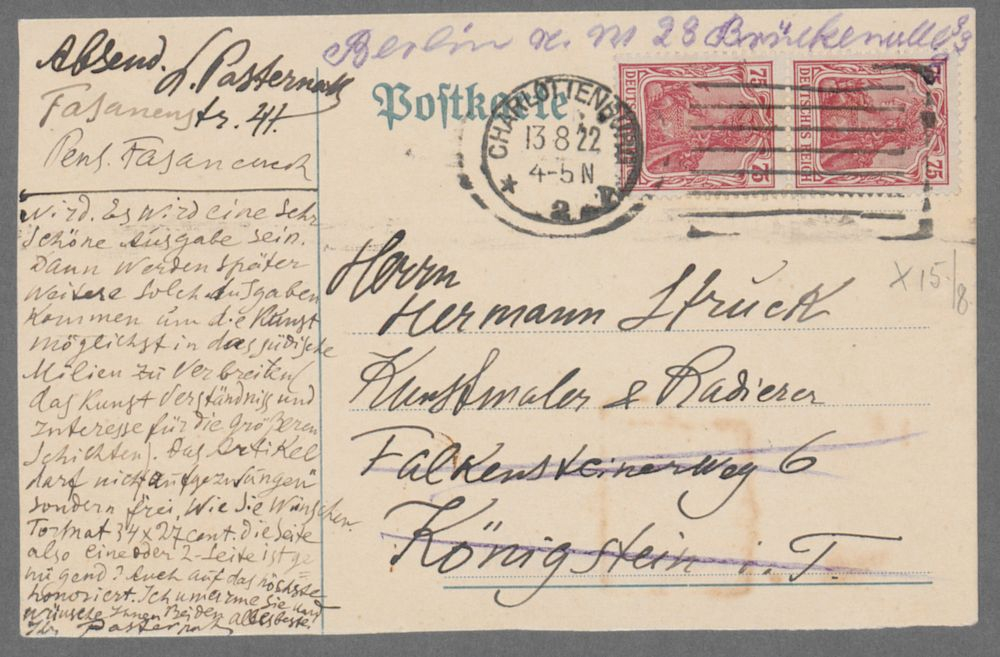 Berlin n. W 23 Brückenallee 33
Absend. L. Pasternak
Fasanenstr. 41.
Pens. Fasaneneck
Postkarte
CHARLOTTENBURG
13 8 22
4-5 N
* 2
75 DEUTSCHES REICH 75
75 DEUTSCHES REICH 75
X 15/8.
wird. Es wird eine sehr
schöne Ausgabe sein.
Dann werden später
weitere solch Ausgaben
kommen um die Kunst
möglichst in das jüdische
Milieu zu verbreiten
das Kunst Verständniss und
Interesse für die größeren
Schichten. Das Artikel
darf nicht "aufgezwungen"
sondern frei, wie Sie wünschen.
Format 34 x 27 cent. die Seite
also eine oder 2-Seite ist ge
nügend? Auch auf das höchste
honoriert. Ich umarme Sie und
wünsche Ihnen Beiden alles beste.
Ihr Pasternak
Herrn
Hermann Struck
Kunstmaler & Radierer
Falkensteinerweg 6
Königstein i. T.